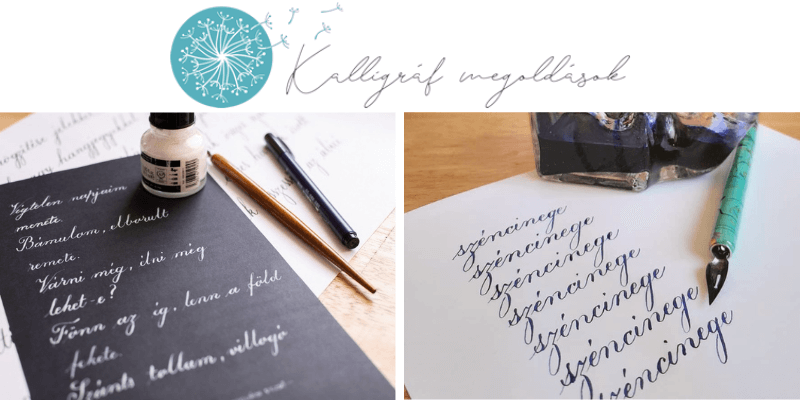 Kalligráf megoldások
Végtelen napjaim
menete.
Bámulom, elborult
remete.
Várni még, élni még
lehet-e?
Fönn az ég, lenn a föld
fekete.
Szánts tollam, villogó
széncinege
széncinege
széncinege
széncinege
széncinege
széncinege
széncinege